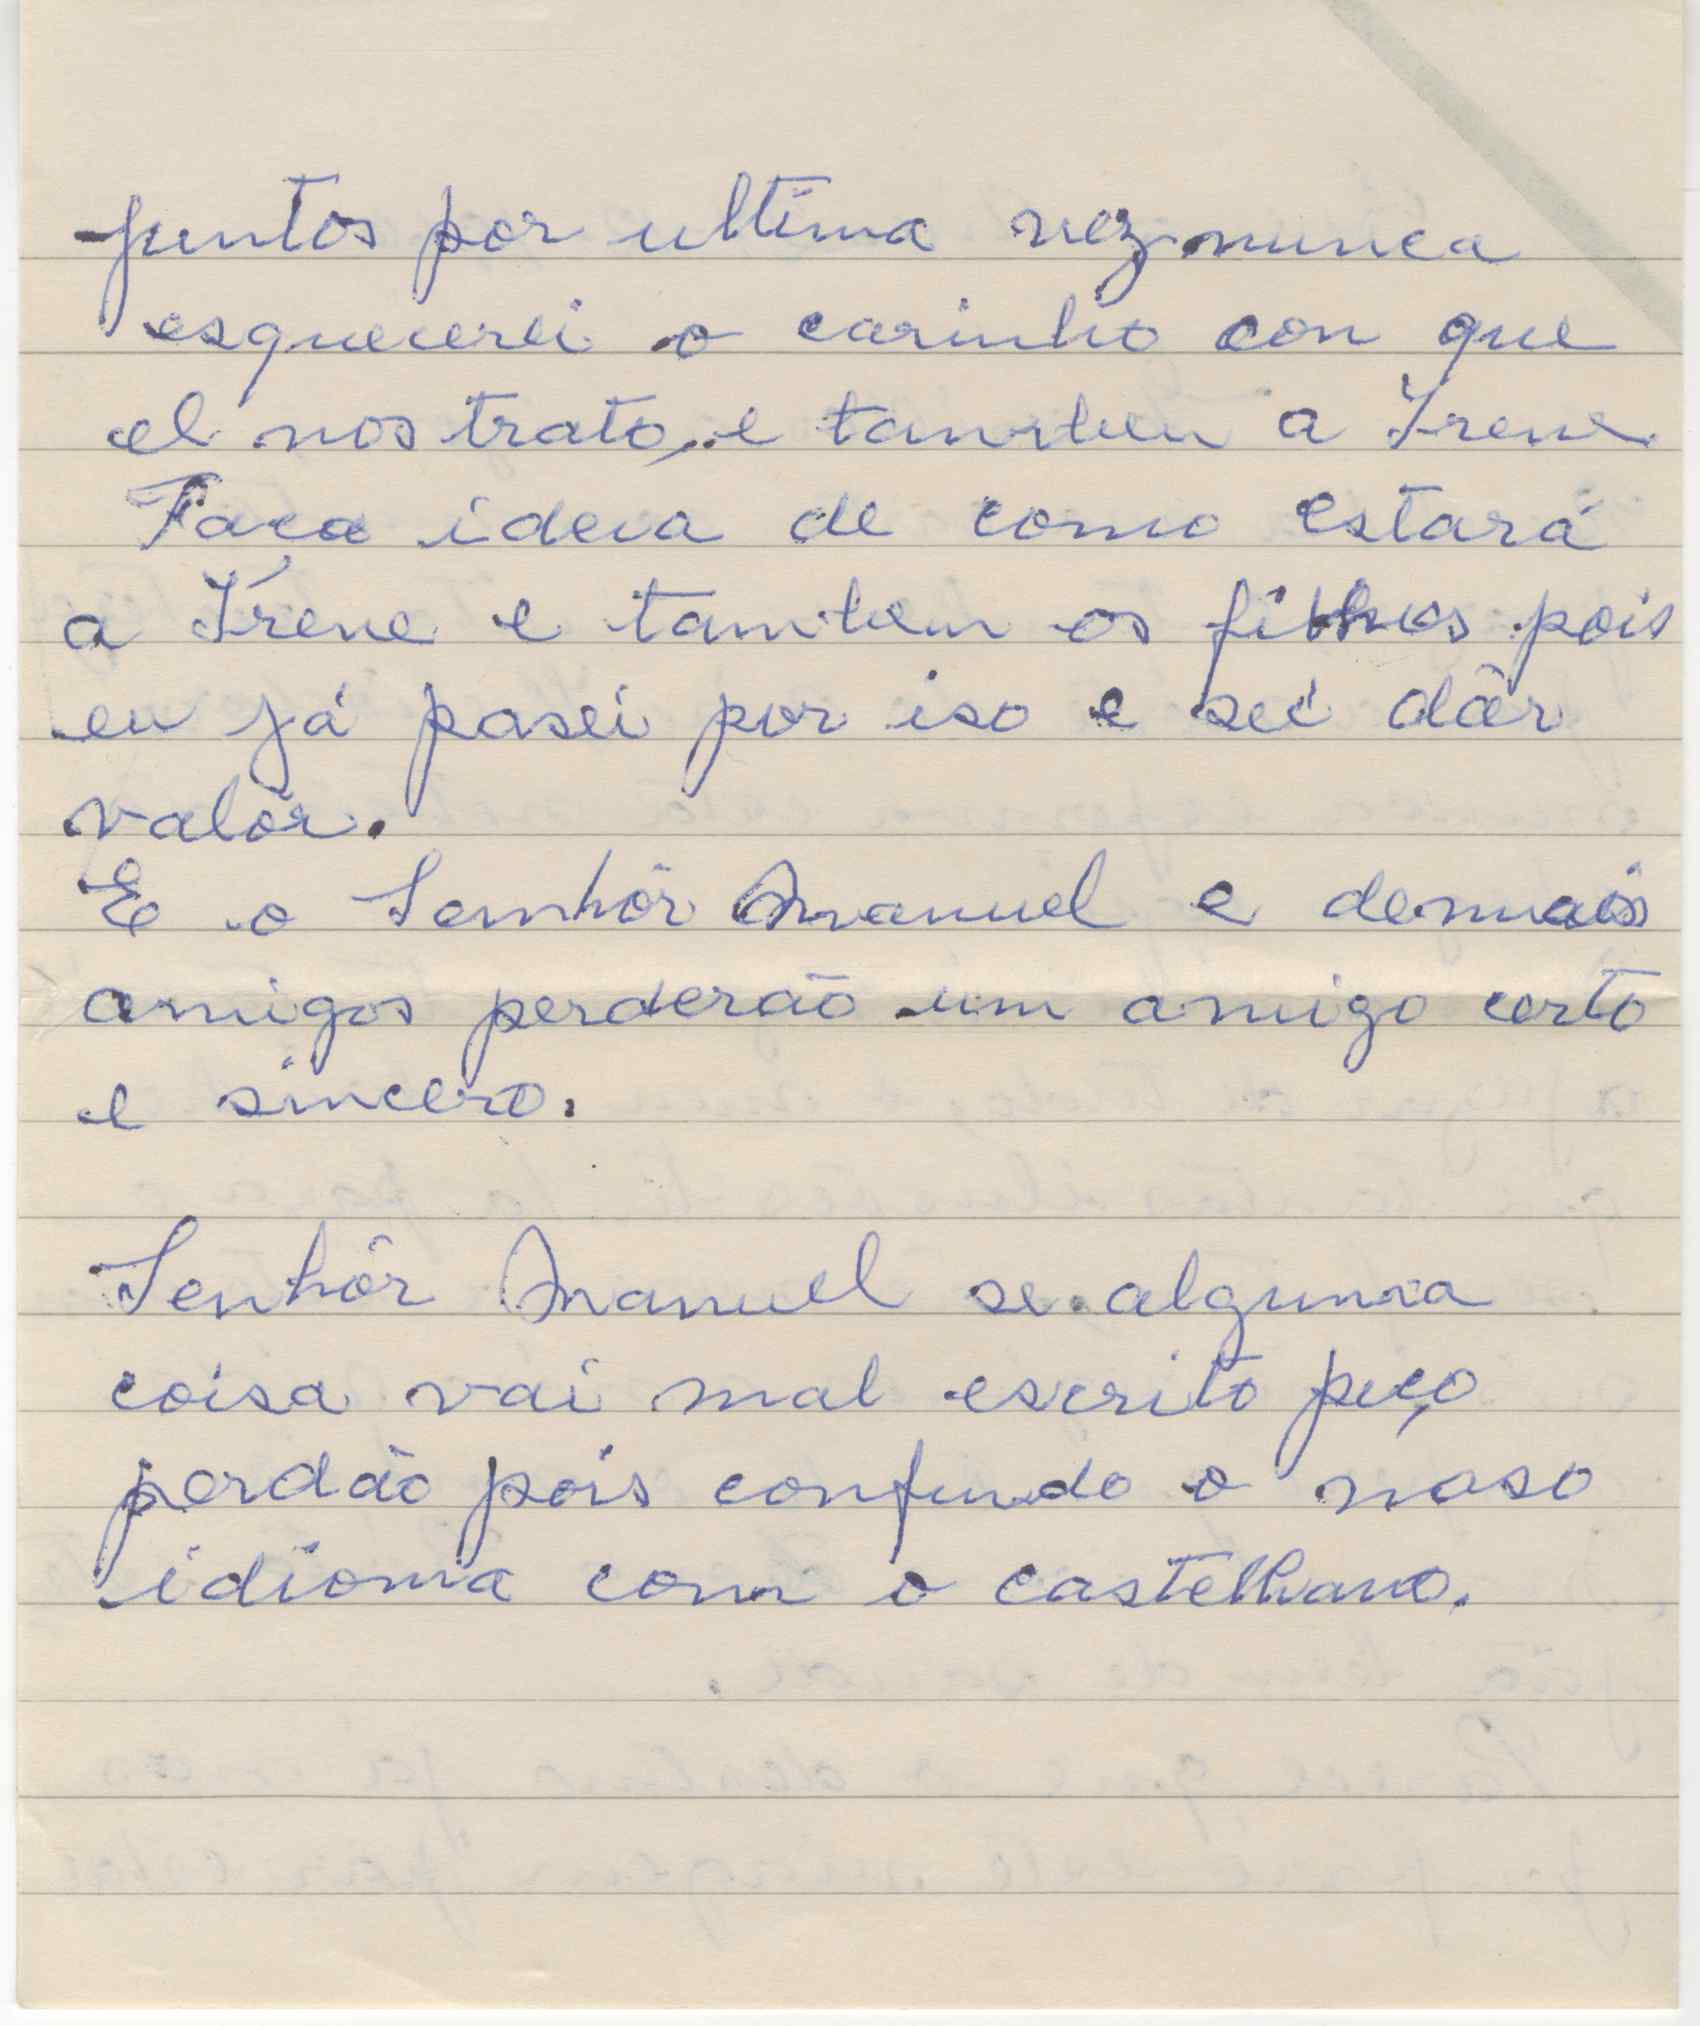 juntos por ultima vez nunca
esquecerei o carinho con que
el nos trato, e tambem a Irene
Faco ideia de como estará
a Irene e tambem os filhos pois
eu já pasei por iso e sei dâr
valôr.
E o Senhôr Manuel e demais
amigos perderão um amigo certo
e sincero.
Senhôr Manuel se alguma
coisa vai mal escrito peço
perdão pois confundo o noso
idioma com o castelhano.